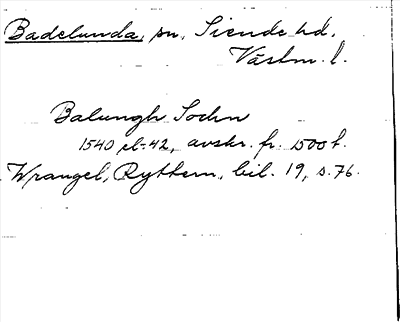 Badelunda, sn, Siende hd,
Västm. l.
Balungh Sochn
1540 el. 42, avskr. fr. 1500 t.
Wrangel, Ryttern, bil. 19, s. 76.